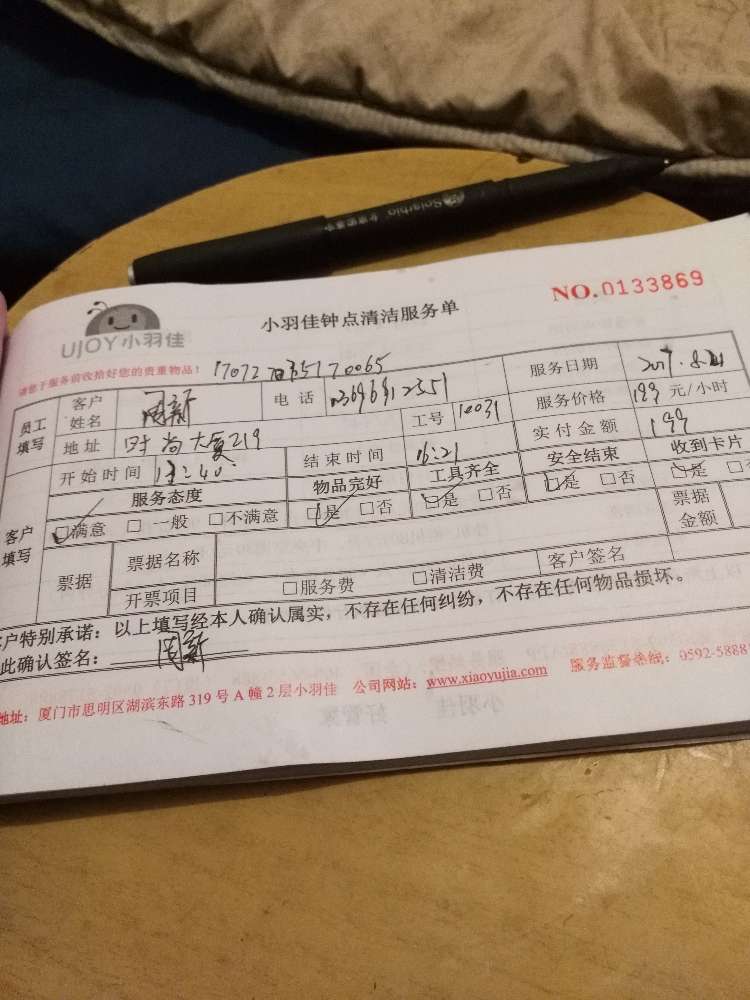 Solarbio
NO.0133869
UJOY小羽佳
小羽佳钟点清洁服务单
请您于服务前收拾好您的贵重物品!
员工填写 客户姓名 周新 电话 服务日期
地址 时尚大厦219 工号 10031 服务价格 199 元/小时
开始时间 13:40 结束时间 16:21 实付金额 199
客户填写 服务态度 物品完好 工具齐全 安全结束 收到卡片
□满意 □一般 □不满意 □是 □否 □是 □否 □是 □否 □是 □否
票据 票据名称 票据金额
开票项目 □服务费 □清洁费 客户签名
客户特别承诺:以上填写经本人确认属实,不存在任何纠纷,不存在任何物品损坏。
此确认签名: 周新
地址:厦门市思明区湖滨东路319号A幢2层小羽佳 公司网站:www.xiaoyujia.com 服务监督热线:0592-5888